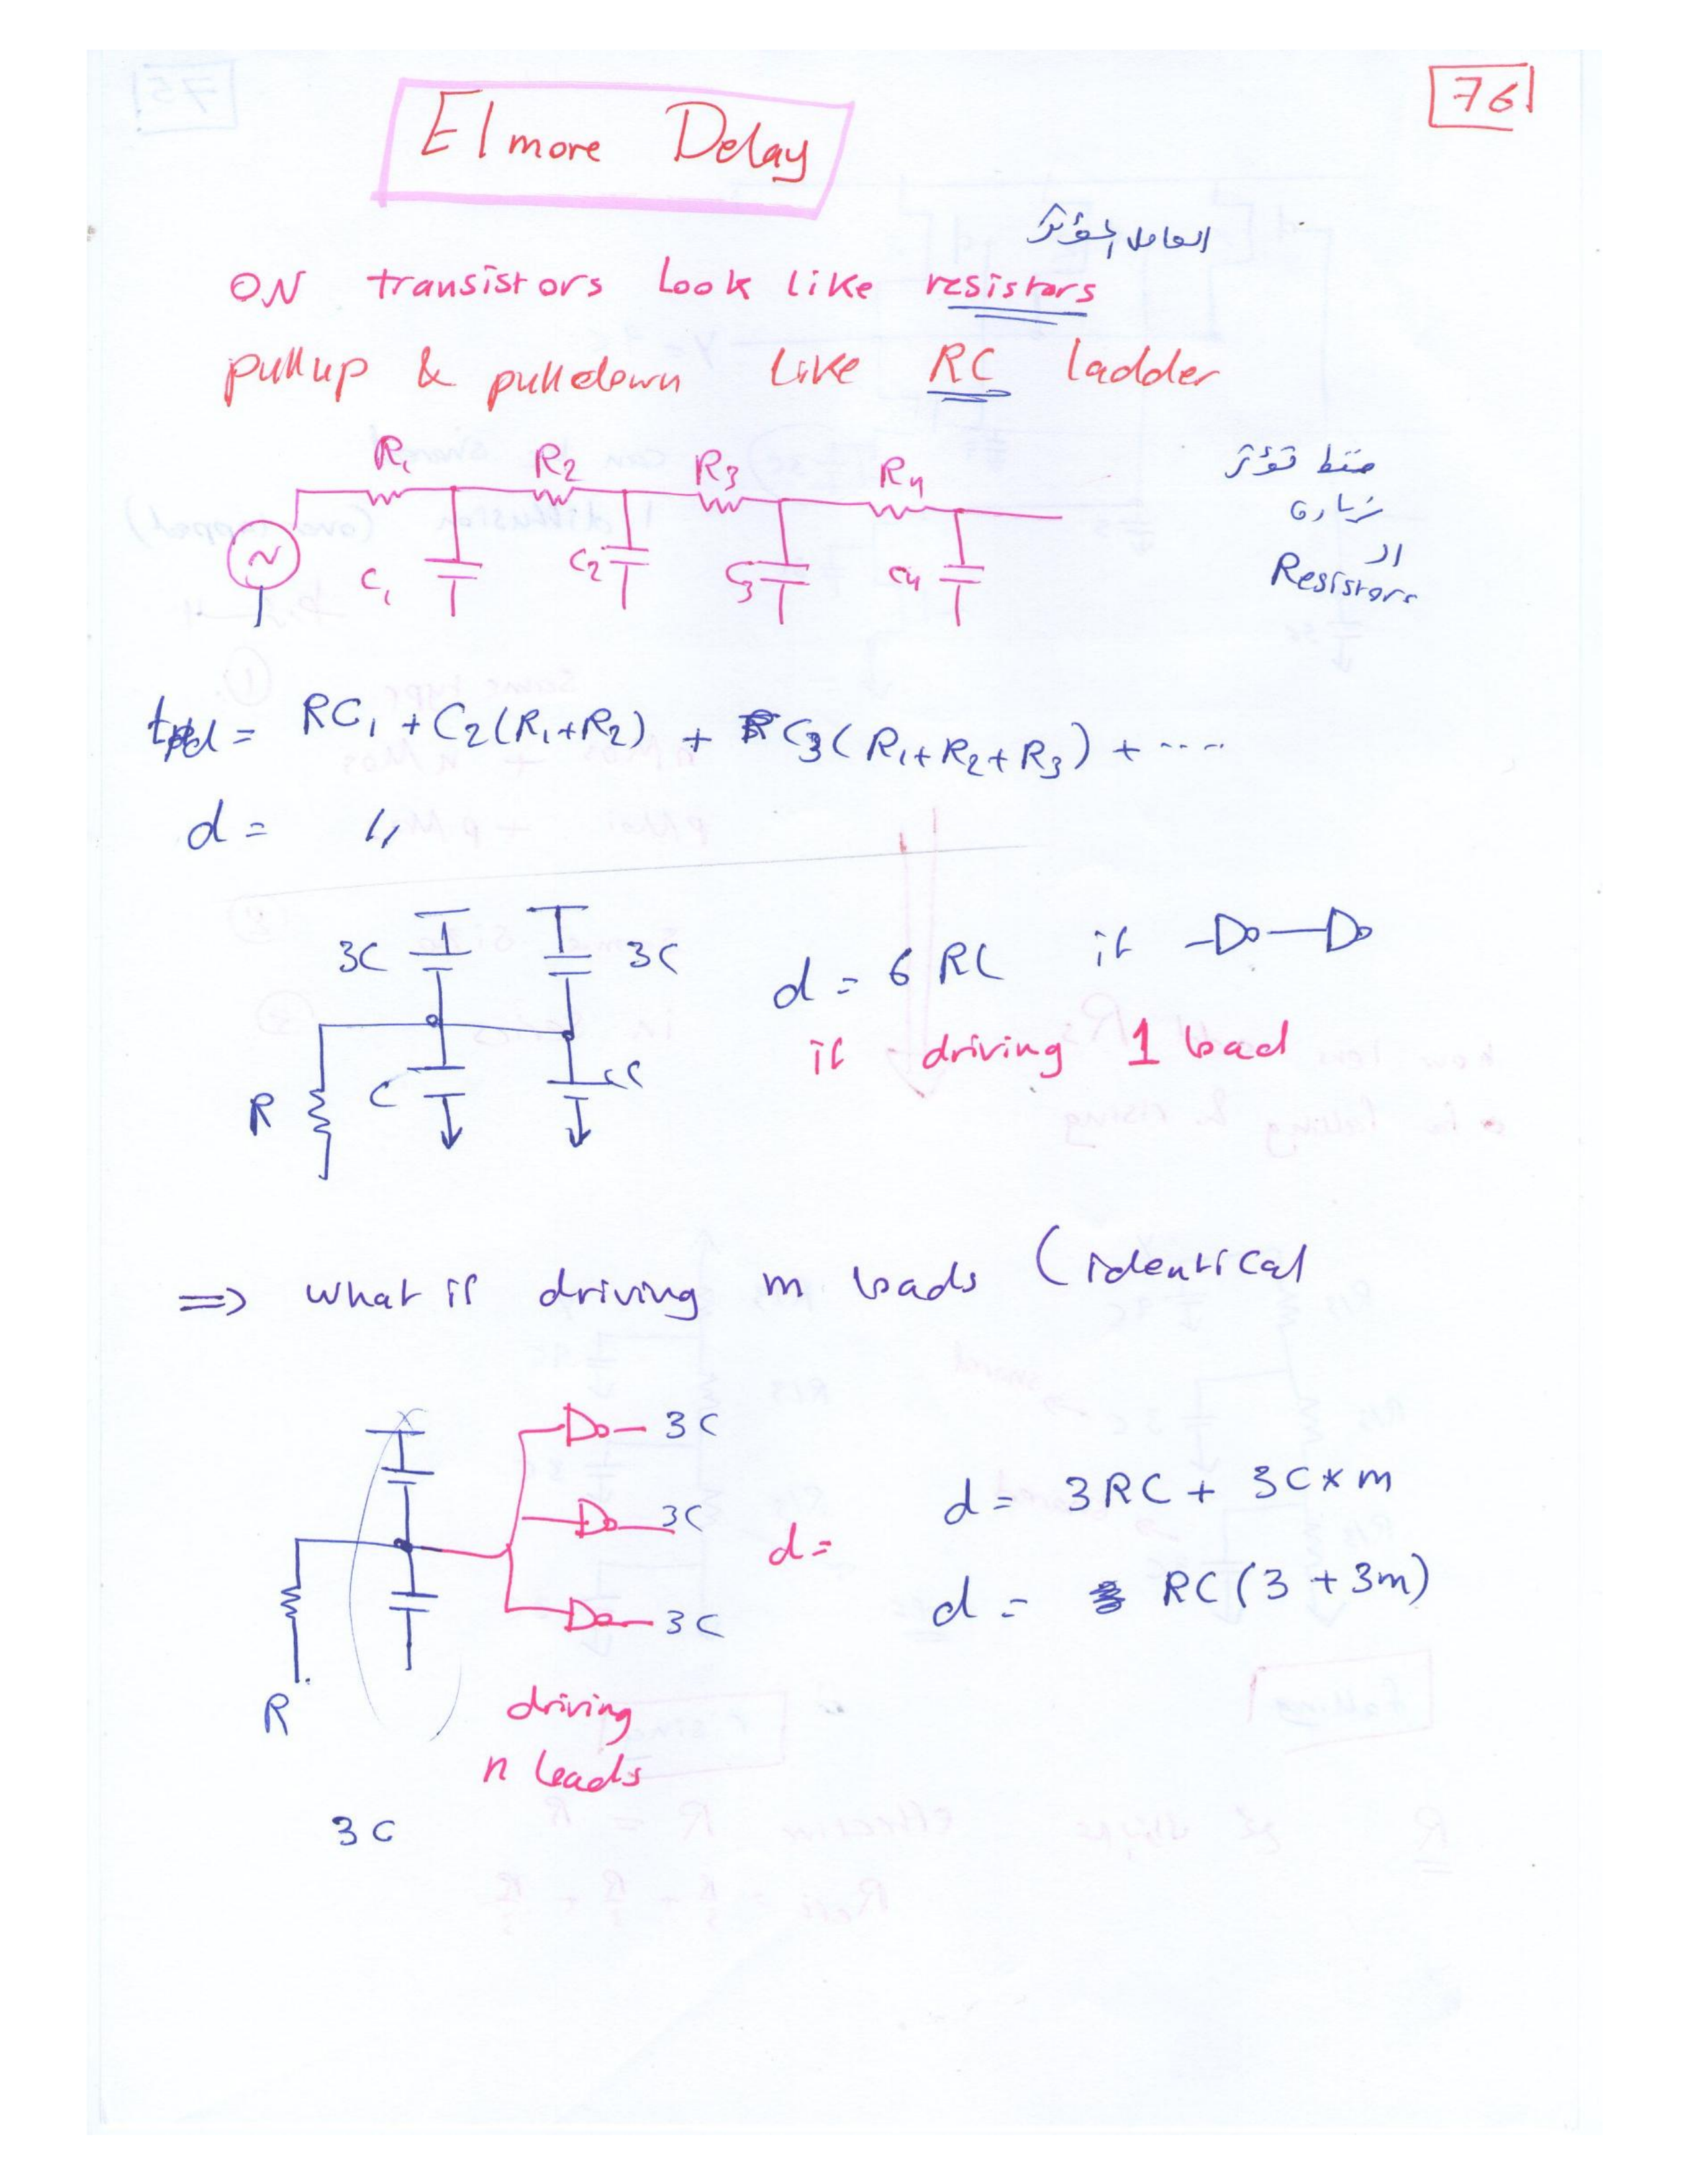 76
Elmore Delay
العامل المؤثر
ON transistors look like resistors
pullup & pulldown like RC ladder
R1 R2 R3 R4
C1 C2 C3 C4
فقط تؤثر
زيادة
ال
Resistors
tpd = RC1 + C2(R1+R2) + C3(R1+R2+R3) + ....
d = 〃
3C 3C
d = 6RC if
if driving 1 load
R C C
=> what if driving m loads (identical
3C
3C
3C
d =
d = 3RC + 3C*m
d = RC(3+3m)
R
driving
n loads
3C